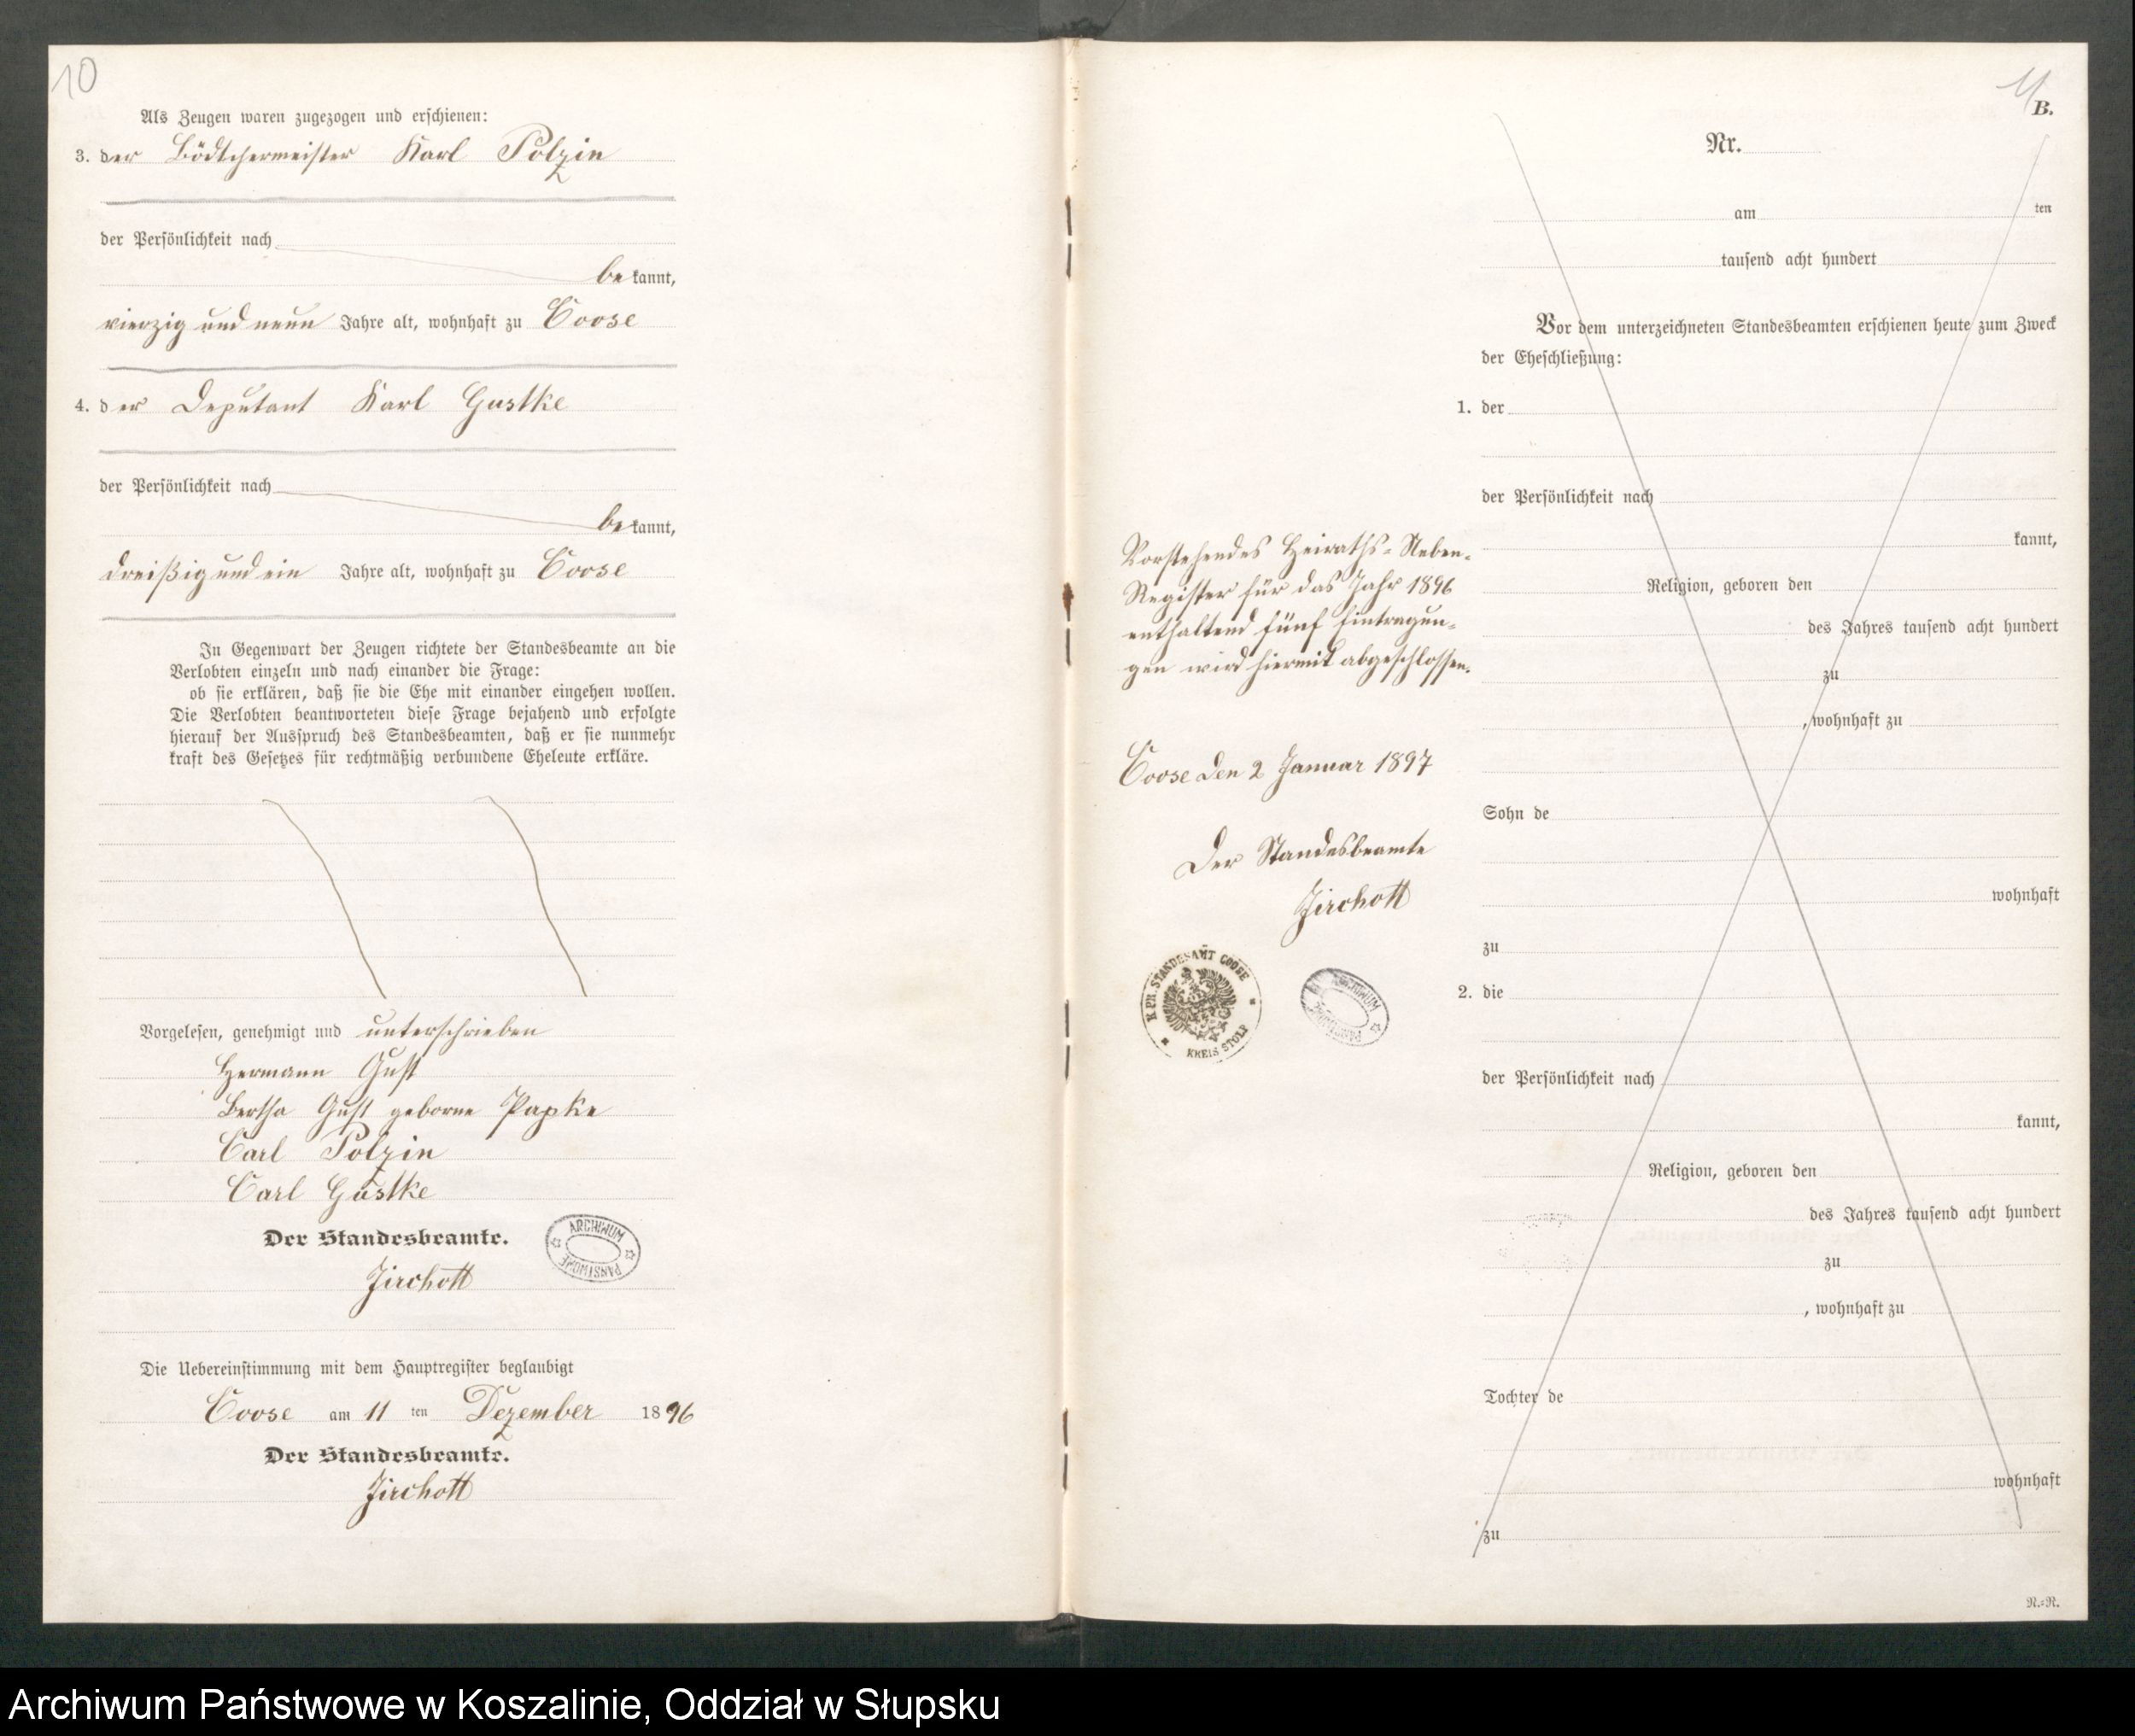 10
Als Zeugen waren zugezogen und erschienen:
3. der Bödtchermeister Karl Polzin
der Persönlichkeit nach
bekannt,
vierzig und neun Jahre alt, wohnhaft zu Coose
4. der Deputant Karl Gustke
der Persönlichkeit nach
bekannt,
dreißig und ein Jahre alt, wohnhaft zu Coose
In Gegenwart der Zeugen richtete der Standesbeamte an die
Verlobten einzeln und nach einander die Frage:
ob sie erklären, daß sie die Ehe mit einander eingehen wollen.
Die Verlobten beantworteten diese Frage bejahend und erfolgte
hierauf der Ausspruch des Standesbeamten, daß er sie nunmehr
kraft des Gesetzes für rechtmäßig verbundene Eheleute erkläre.
Vorgelesen, genehmigt und unterschrieben
Hermann Gust
Bertha Gust geborne Papke
Carl Polzin
Carl Gustke
Der Standesbeamte.
ARCHIWUM PAŃSTWOWE
Jirchott
Die Uebereinstimmung mit dem Hauptregister beglaubigt
Coose am 11 ten Dezember 1896
Der Standesbeamte.
Jirchott
11
B.
Nr.
am ten
tausend acht hundert
Vor dem unterzeichneten Standesbeamten erschienen heute zum Zweck
der Eheschließung:
1. der
der Persönlichkeit nach
kannt,
Religion, geboren den
des Jahres tausend acht hundert
zu
, wohnhaft zu
Sohn de
wohnhaft
zu
2. die
der Persönlichkeit nach
kannt,
Religion, geboren den
des Jahres tausend acht hundert
zu
, wohnhaft zu
Tochter de
wohnhaft
zu
R.=R.
Vorstehendes Heiraths-Neben-
Register für das Jahr 1896
enthaltend fünf Eintragun-
gen wird hiermit abgeschlossen.
Coose den 2 Januar 1897
Der Standesbeamte
Jirchott
K. PR. STANDESAMT COOSE
KREIS STOLP
ARCHIWUM PAŃSTWOWE
Archiwum Państwowe w Koszalinie, Oddział w Słupsku